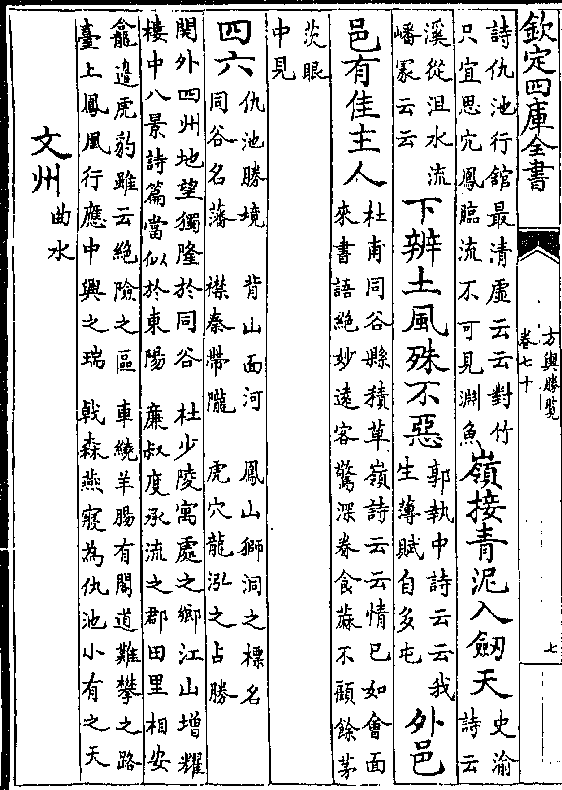 欽定四庫全書
方輿勝覽
卷七十
七
詩仇池行館最清虛云云對竹
只宜思宂鳳臨流不可見淵魚
嶺接青泥入劒天
史渝
詩云
溪從沮水流
嶓冢云云
下辨土風殊不惡
郭執中詩云云我
生薄賦自多屯
外邑
邑有佳主人
杜甫同谷縣積草嶺詩云云情已如會面
來書語絶妙逺客驚深眷食蕨不願餘茅
茨眼
中見
四六
仇池勝境 背山面河 鳳山獅洞之標名
同谷名藩 襟秦帶隴 虎穴龍泓之占勝
關外四州地望獨隆於同谷 杜少陵寓處之鄉江山增耀
樓中八景詩篇當似於東陽 廉叔度承流之郡田里相安
龕邉虎豹雖云絶險之區 車繞羊腸有閣道難攀之路
臺上鳳凰行應中興之瑞 戟森燕寢為仇池小有之天
文州
曲水